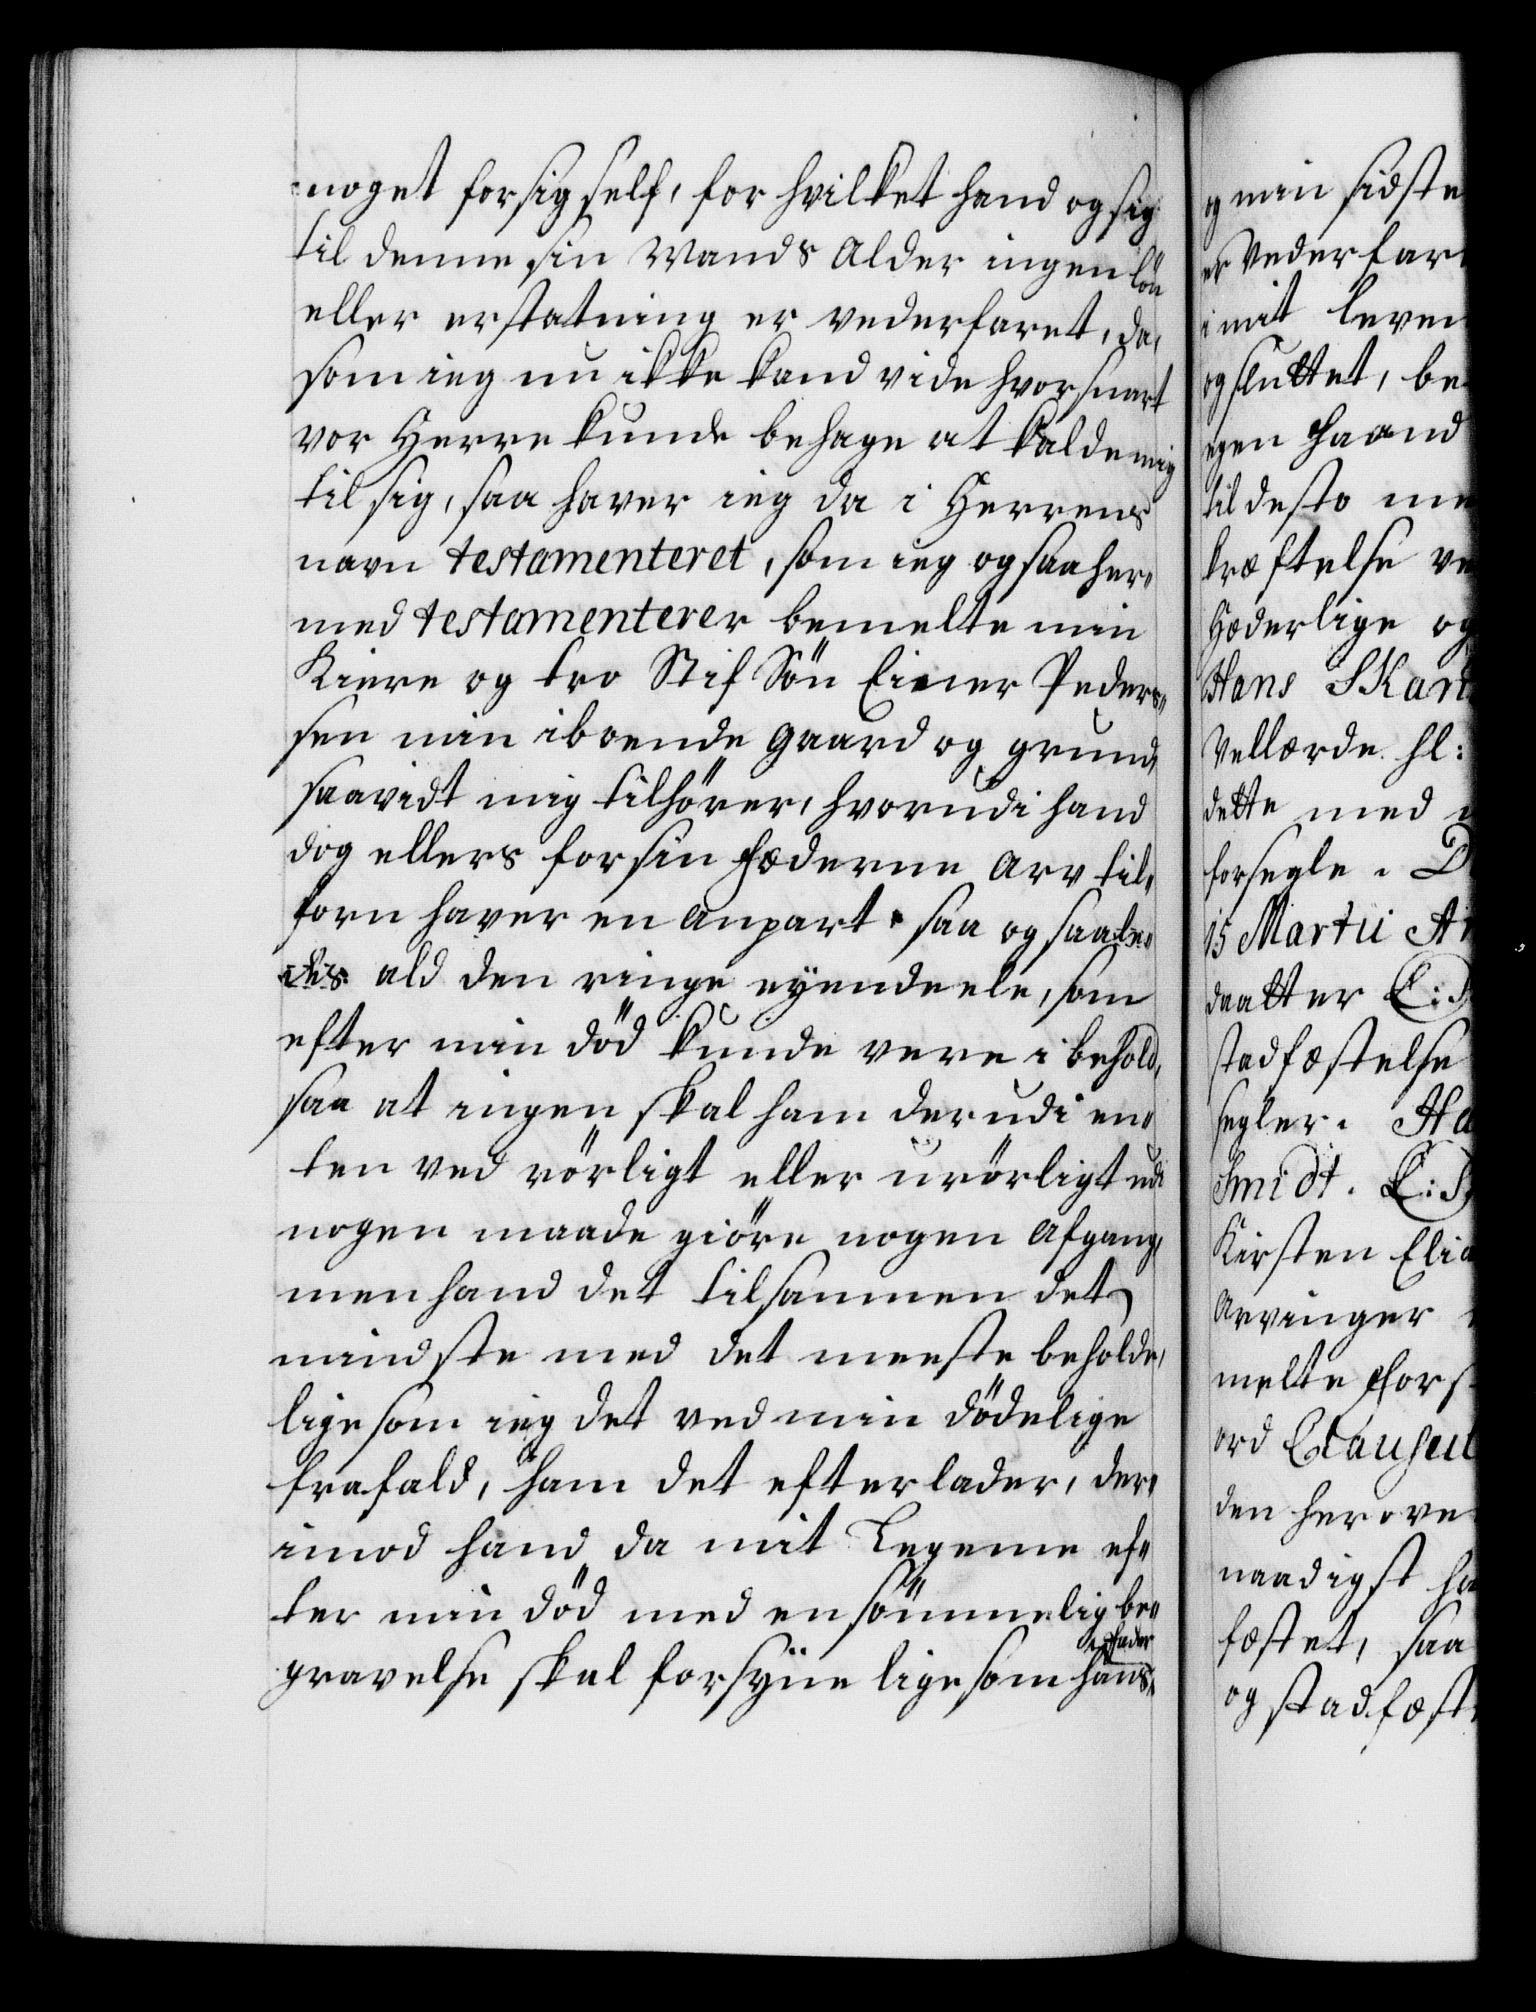 noget forsig self, for hvilket hand og sig
til denne sin Mands Alder ingen lön
eller erstatning er vederfaret, da,
som ieg nu ikke kand vide hvorsnart
vor Herre kunde behage at kalde mig
til sig, saa haver ieg da i Herrens
navn testamenteret, som ieg ogsaa her„
med testamenterer bemelte min
Kiere og tro Stif Sön Einer Peders„
sen min iboende gaard og grund,
saavidt mig tilhörer, hvorudi hand
dog ellers for sin fæderne Arv til„
forn haver en anpart saa og saale„
des ald den ringe eyendeele, som
efter min död kunde vere i behold,
saa at ingen skal ham derudi en„
ten ved rörligt eller urörligt udi
nogen maade giöre nogen Afgang,
men hand det tilsammen det
mindste med det meeste beholde,
ligesom ieg det ved min dödelige
frafald, ham det efterlader, der„
imod hand da mit Legeme ef„
ter min död med en sömmelig be„
gravelse skal forsyne ligesom hans
fader
og min sidste
er vederfar
i mit leven
og sluttet, be
egen Haand
til desto me
kræftelse ve
Hæderlige og
Hans SKart
Vellærde Hl:
dette med
forsegle. D
15 Martii A
daatter L:S
stadfæstelse
segler. Ha
Smidt. L:S
Kirsten Elia
Arvinger
melte fors
ord Clausul
den herove
naadigst ha
fæstet, saa
og stadfæst